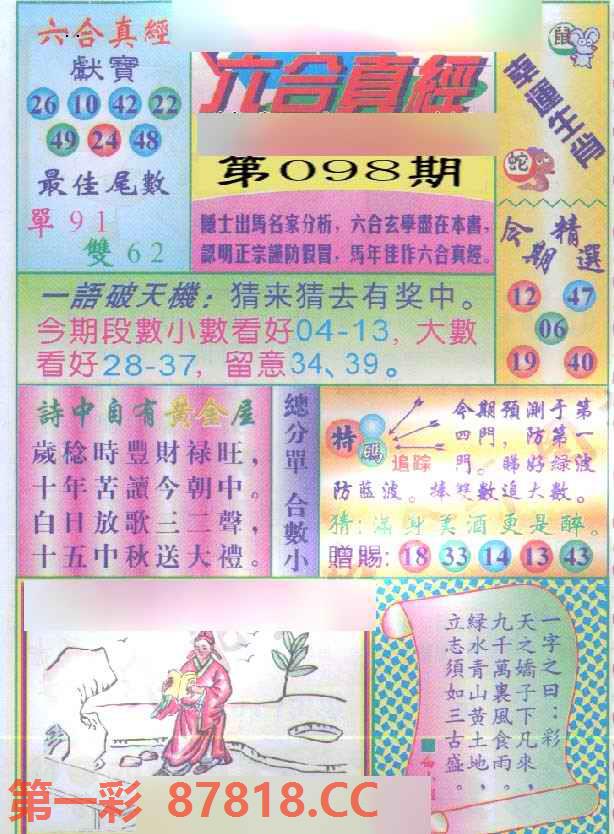 六合真經
獻寶
26 10 42 22
49 24 48
最佳尾數
單91
雙62
六合真經
第098期
隱士出馬名家分析，六合玄學盡在本書，
認明正宗謹防假冒，馬年佳作六合真經。
鼠
幸運生肖
蛇
今期精選
12 47
06
19 40
一語破天機：猜来猜去有奖中。
今期段數小數看好04-13，大數
看好28-37，留意34、39。
詩中自有黃金屋
歲稔時豐財祿旺，
十年苦讀今朝中。
白日放歌三二聲，
十五中秋送大禮。
總分單 合數小
特碼追踪
今期預測于第
四門，防第一
門。睇好綠波
防藍波。捧雙數追大數。
猜：滿身美酒更是醉。
贈賜：18 33 14 13 43
一字之曰：彩
天之嬌子下凡來，
九千萬裏風食雨，
綠水青山黃土地，
立志須如三古盛。
第一彩 87818.CC